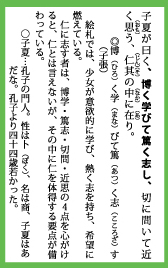 子夏が曰く、博く学びて篤く志し、切に問いて近
く思う、仁其の中に在り。
◎博(ひろ)く学(まな)びて篤(あつ)く志(こころざ)す
(子張)
絵札では、少女が意欲的に学び、熱く志を持ち、希望に
燃えている。
仁に志す者は、博学・篤志・切問・近思の4点を心がけ
ると、仁とは言えないが、その中に仁を体得する要点が備
わっている。
○子夏…孔子の門人。姓は卜(ぼく)、名は商、子夏はあ
だな。孔子より四十四歳若かった。